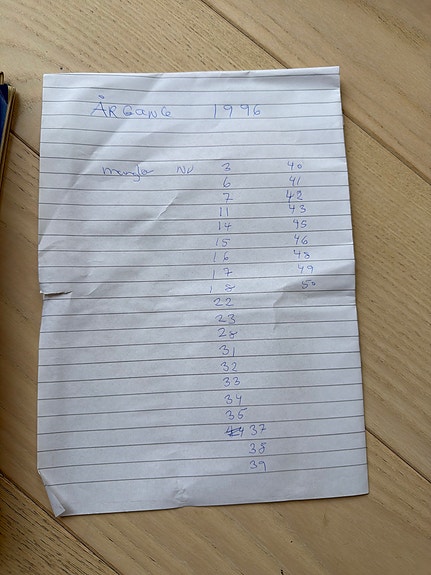 ÅRGANG 1996
mangler NU 3 40
6 41
7 42
11 43
14 45
15 46
16 48
17 49
18 50
22
23
28
31
32
33
34
35
37
38
39